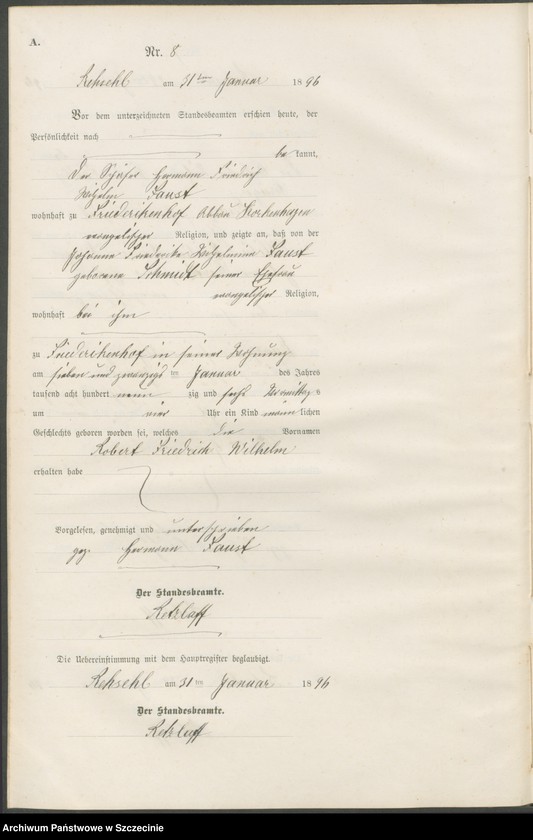 A.
Nr. 8
Rehsehl am 31ten Januar 1896
Vor dem unterzeichneten Standesbeamten erschien heute, der
Persönlichkeit nach
be kannt,
Der Schäfer Hermann Friedrich
Wilhelm Faust
wohnhaft zu Friederikenhof Abbau
evangelischer Religion, und zeigte an, daß von der
Johanna Friederike Wilhelmine Faust
geborene Schmidt seiner Ehefrau
evangelischer Religion,
wohnhaft bei ihm
zu Friederikenhof in seiner Wohnung
am sieben und zwanzigsten Januar des Jahres
tausend acht hundert neun zig und sechs Vormittags
um vier Uhr ein Kind männ lichen
Geschlechts geboren worden sei, welches die Vornamen
Robert Friedrich Wilhelm
erhalten habe
Vorgelesen, genehmigt und unterschrieben
gez. Hermann Faust
Der Standesbeamte.
Retzlaff
Die Uebereinstimmung mit dem Hauptregister beglaubigt.
Rehsehl am 31ten Januar 1896
Der Standesbeamte.
Retzlaff
Archiwum Państwowe w Szczecinie